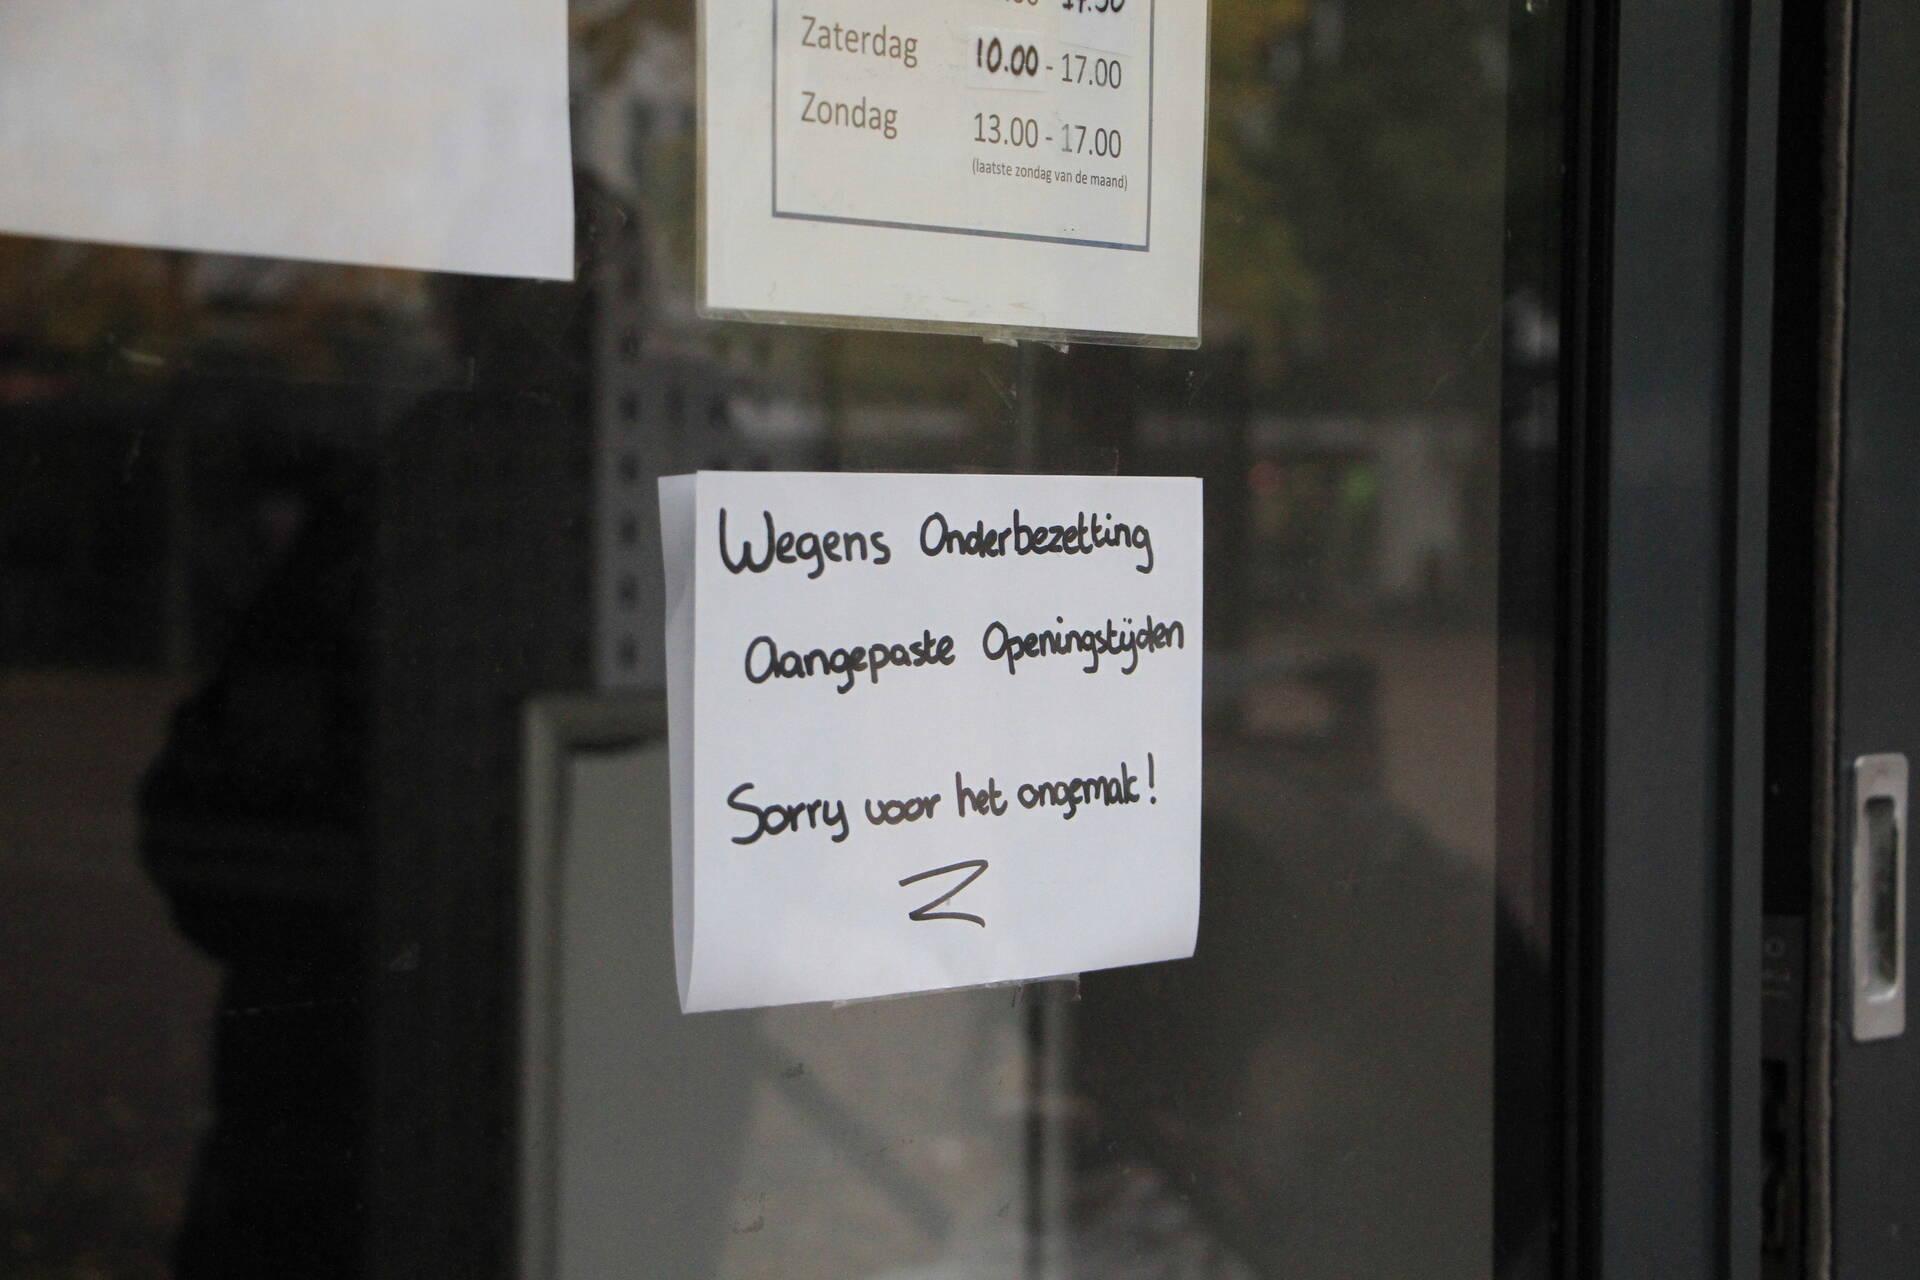 17.30
Zaterdag 10.00 - 17.00
Zondag 13.00 - 17.00
(laatste zondag van de maand)
Wegens Onderbezetting
Aangepaste Openingstijden
Sorry voor het ongemak!
Z